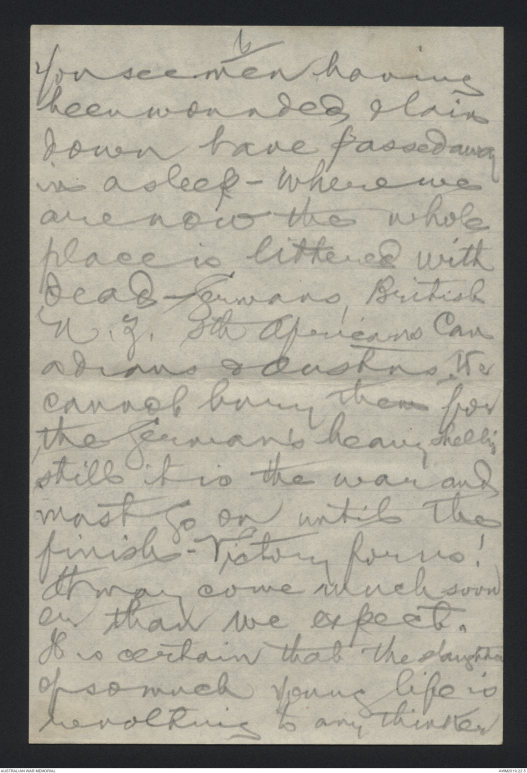 6
You see men having
been wounded, & lain
down have passed away
in asleep - where we
are now the whole
place is littered with
dead - Germans, British
N. Z. Sth Africans Can
adians & Austns. We
cannot bury them for
the German's heavy shelling
still it is the war and
must go on until the
finish - Victory for us!
It may come much soon
er than we expect.
It is certain that the slaughter
of so much young life is
revolting to any thinker
AUSTRALIAN WAR MEMORIAL